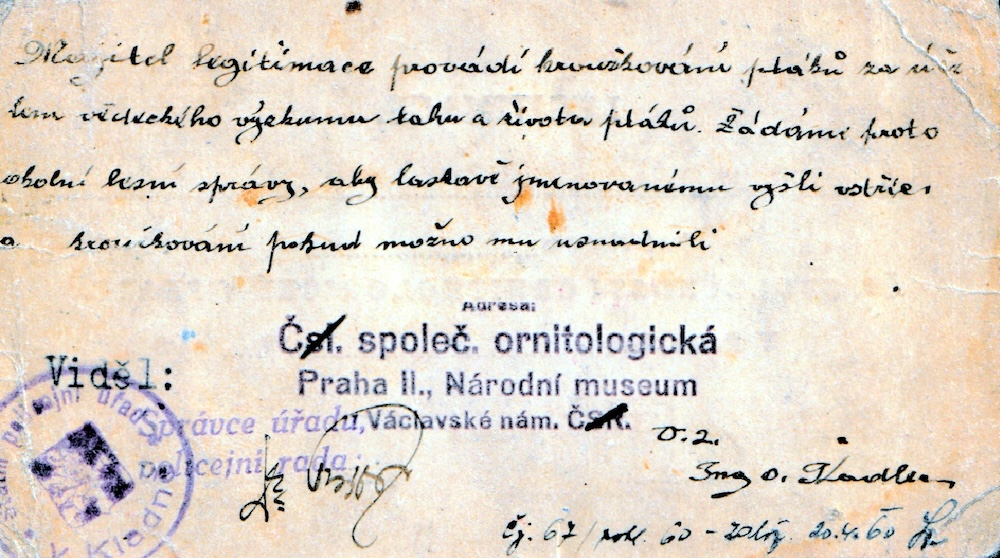 Majitel legitimace provádí kroužkování ptáků za úče
lem vědeckého výzkumu tahu a života ptáků. Žádáme proto
okolní lesní správy, aby laskavě jmenovanému vyšli vstříc
a kroužkování pokud možno mu usnadnili
Adresa:
Čsl. společ. ornitologická
Praha II., Národní museum
Václavské nám. ČSR.
Viděl:
Správce úřadu,
policejní rada:
policejní úřad
Kladn
Ing O. Kadlec
čj. 67/ 60 - 20.4.60